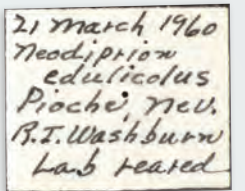 21 March 1960
Neodiprion
edulicolus
Pioche, Nev.
R.I. Washburn
Lab reared